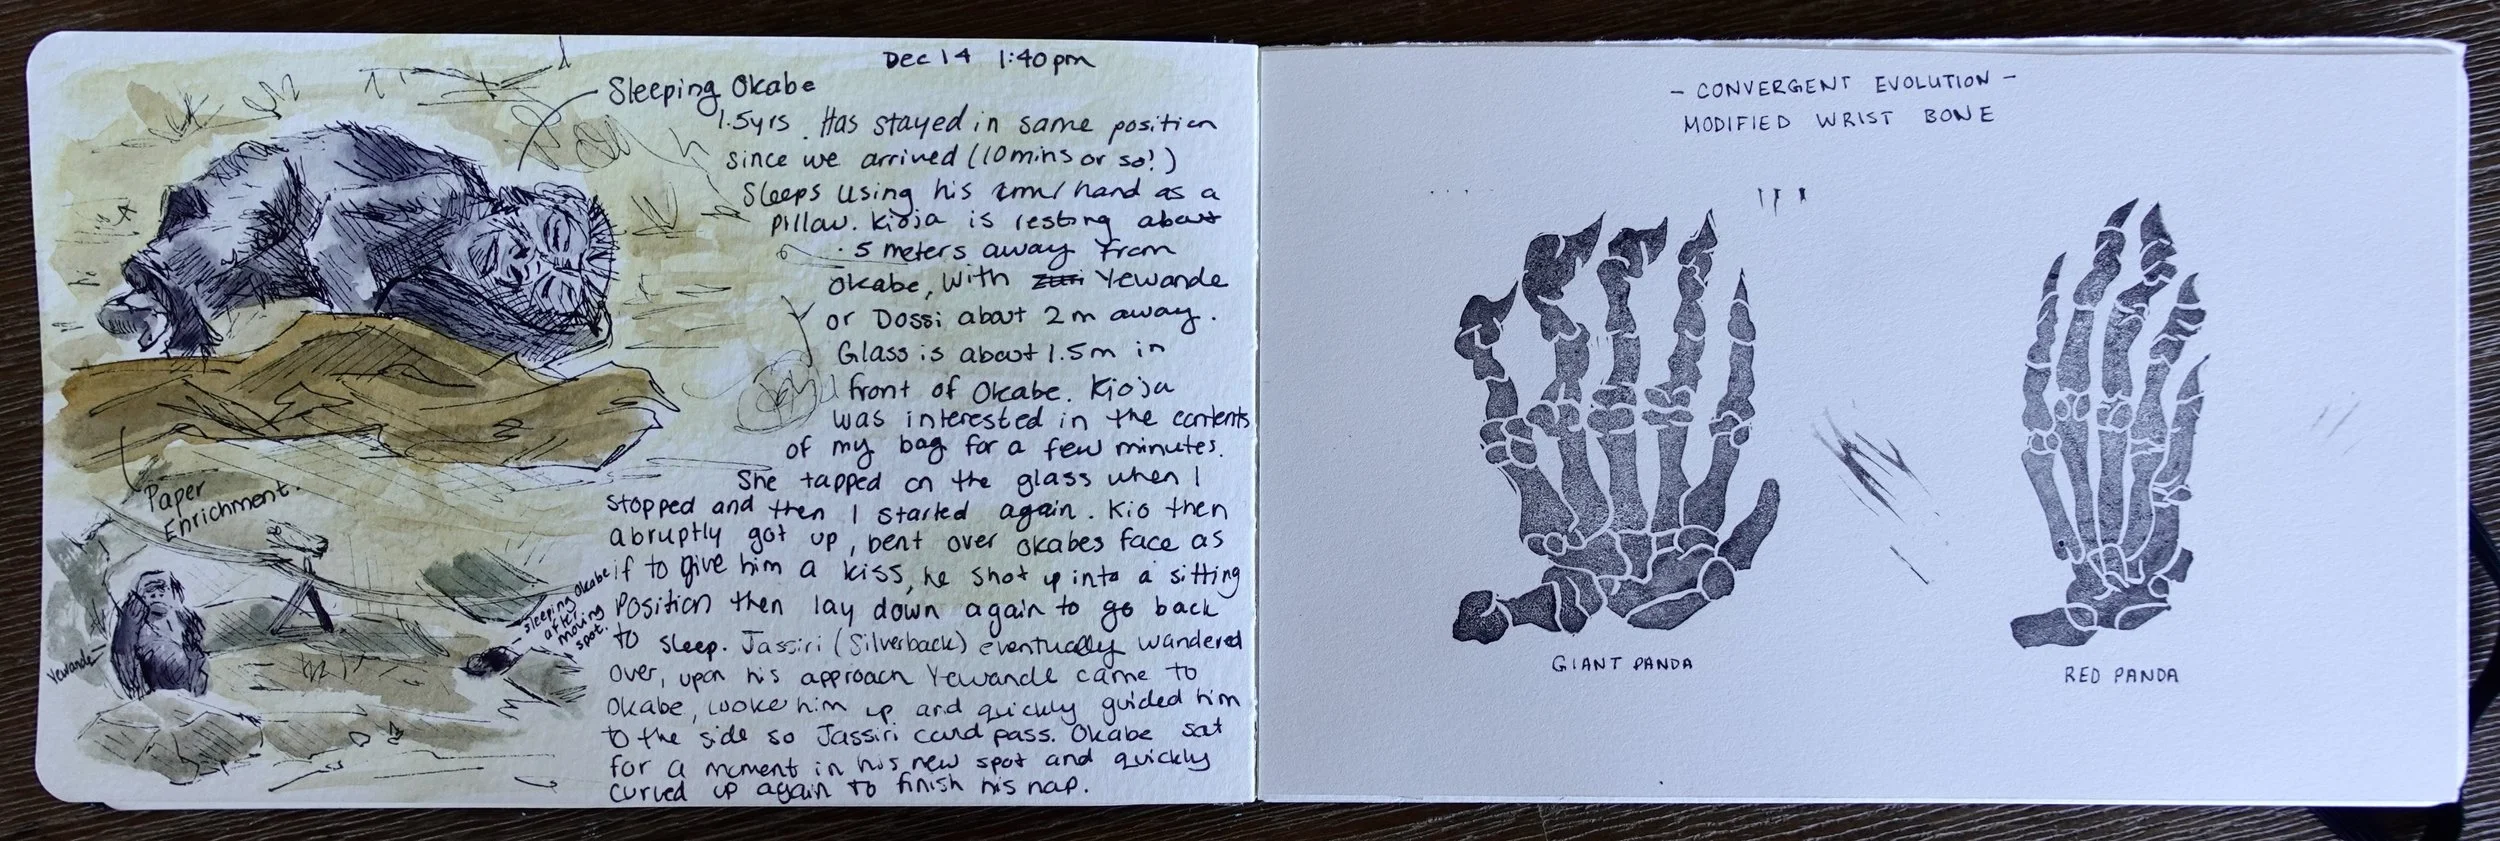 Dec 14 1:40pm
Sleeping Okabe
1.5yrs. Has stayed in same position
since we arrived (10mins or so!)
Sleeps using his arm/hand as a
pillow. Kioja is resting about
.5 meters away from
Okabe, with Yewande
or Dossi about 2m away.
Glass is about 1.5m in
front of Okabe. Kioja
was interested in the contents
of my bag for a few minutes.
She tapped on the glass when I
stopped and then I started again. Kio then
abruptly got up, bent over Okabes face as
if to give him a kiss, he shot up into a sitting
position then lay down again to go back
to sleep. Jassiri (Silverback) eventually wandered
over, upon his approach Yewande came to
Okabe, woke him up and quickly guided him
to the side so Jassiri could pass. Okabe sat
for a moment in his new spot and quickly
curled up again to finish his nap.
Paper
Enrichment.
Yewande
Sleeping Okabe
after
moving
spot.
- CONVERGENT EVOLUTION -
MODIFIED WRIST BONE
GIANT PANDA
RED PANDA